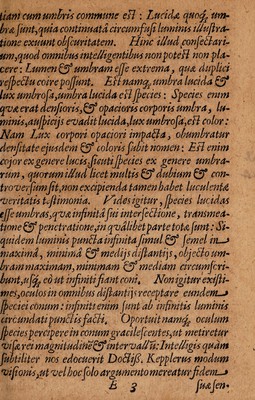 tiam cum umbris commune est: Lucidæ quoq́, um-
bræ sunt, quia continuatâ circumfusi luminis illustra-
tione exuunt obscuritatem. Hinc illud consectari-
um, quod omnibus intelligentibus non potest non pla-
cere: Lumen & umbram esse extrema, quæ duplici
respectu coire possunt. Est namq́, umbra lucida &
lux umbrosa, umbra lucida est species: Species enim
quæ erat densioris, & opacioris corporis umbra, lu-
minis, auspicijs evadit lucida, lux umbrosa, est color:
Nam Lux corpori opaciori impacta, obumbratur
densitate ejusdem & coloris subit nomen: Est enim
cojor ex genere lucis, sicuti species ex genere umbra-
rum, quorum illud licet multis & dubium & con-
troversum sit, non excipienda tamen habet luculentæ
veritatis testimonia. Vides igitur, species lucidas
esse umbras, quæ infinitâ sui intersectione, transmea-
tione & penetratione, in quâlibet parte totæ sunt: Si-
quidem luminis puncta infinita simul & semel in
maximâ, minimâ & medijs distantijs, objecto um-
bram maximam, minimam & mediam circumscri-
bunt, usq́, eò ut infiniti fiant coni. Non igitur existi-
mes, oculos in omnibus distantijs receptare eundem
speciei conum: infiniti enim sunt ab infinitis luminis
circundati punctis facti. Oportuit namq́, oculum
species percipere in conum gracilescentes, ut metiretur
visæ rei magnitudinē & intervallū: Intelligis quàm
subtiliter nos edocuerit Doctiss. Kepplerus modum
visionis, ut vel hoc solo argumento mereatur fidem
E 3
suæ sen-